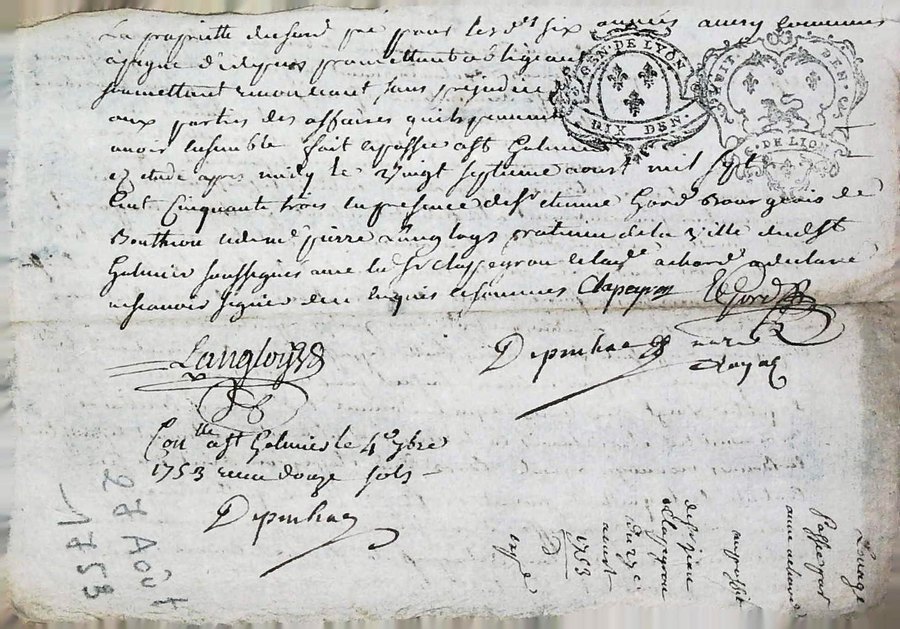 La propriette dud pré pour lesd six années aussy comme
a peyne d'depens promettant obligeant
soumettant renonceant sans prejudice
aux parties des affaires quils peuvent
avoir ensemble fait et passé a St Galmier
ez etude apres midy le vingt septieme aoust mil sept
Cent Cinquante trois en presence de Sr etienne Gord Bourgeois de
Bouthéon et de me pierre Langloys praticien de la ville de St
Galmier soussignes avec led Sr Clapeyron et lad achard a declaré
ne scavoir signer de ce enquis et sommée Clapeyron LeGord
Langloys
Depinhac
nore
Royal
Conlle a St Galmier le 4e 7bre
1753 receu douze sols
Depinhac
GEN. DE LYON
DIX DEN.
HUIT DEN.
G. DE LIO
27 Août
1753
Louage
Passé par
anne achard
au proffit
de sr jean
Clapeyron
du 27e
aoust
1753